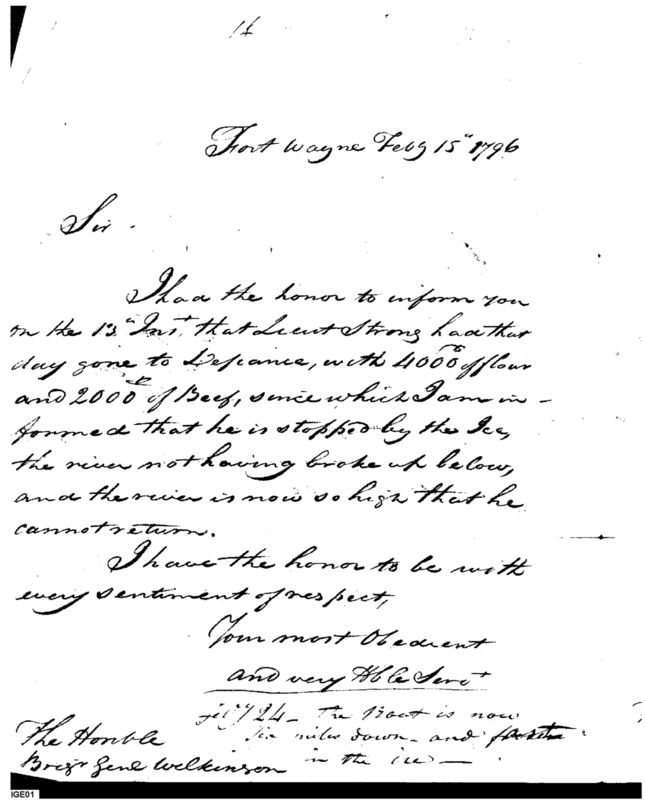 14
Fort Wayne Feby 15th 1796
Sir.
I had the honor to inform you
on the 13th Inst. that Lieut Strong had that
day gone to Defiance, with 4000 lb of flour
and 2000 lb of Beef, since which I am in-
formed that he is stopped by the Ice,
the river not having broke up below,
and the river is now so high that he
cannot return.
I have the honor to be with
every sentiment of respect,
Your most Obedient
and very Hble Servt
feby 24 - The Boat is now
Six miles down - and
in the ice -
The Honble
Brigr Genl Wilkinson
IGE01